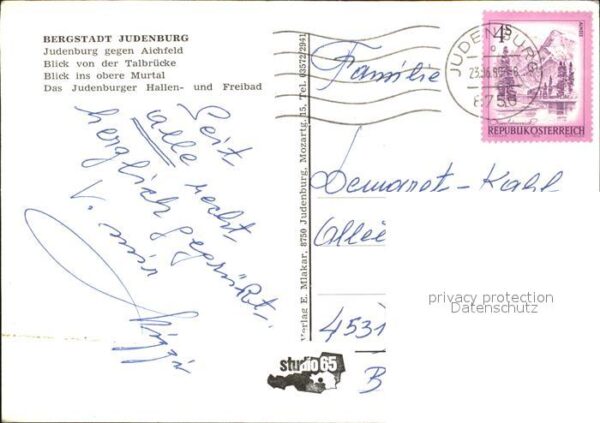 BERGSTADT JUDENBURG
Judenburg gegen Aichfeld
Blick von der Talbrücke
Blick ins obere Murtal
Das Judenburger Hallen- und Freibad
Seit
alle recht
herzlich gegrüßt
v. mir
Verlag E. Mlakar, 8750 Judenburg, Mozartg. 15, Tel. 03572/2941
studio 65
JUDENBURG
8750
4S
REPUBLIK ÖSTERREICH
Familie
Demaret-Kahl
Allee
4531
B
privacy protection
Datenschutz